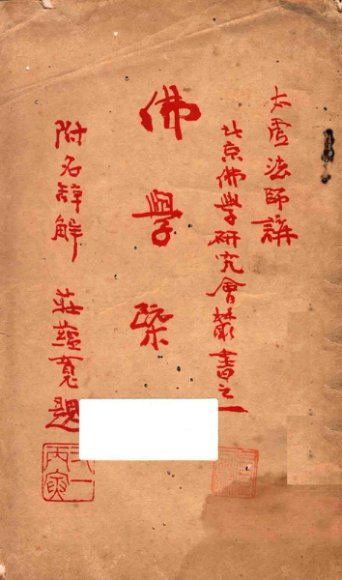 太虛法師講
北京佛學研究會叢書之一
佛學槩
附名辭解 莊蘊寬題
丙寅